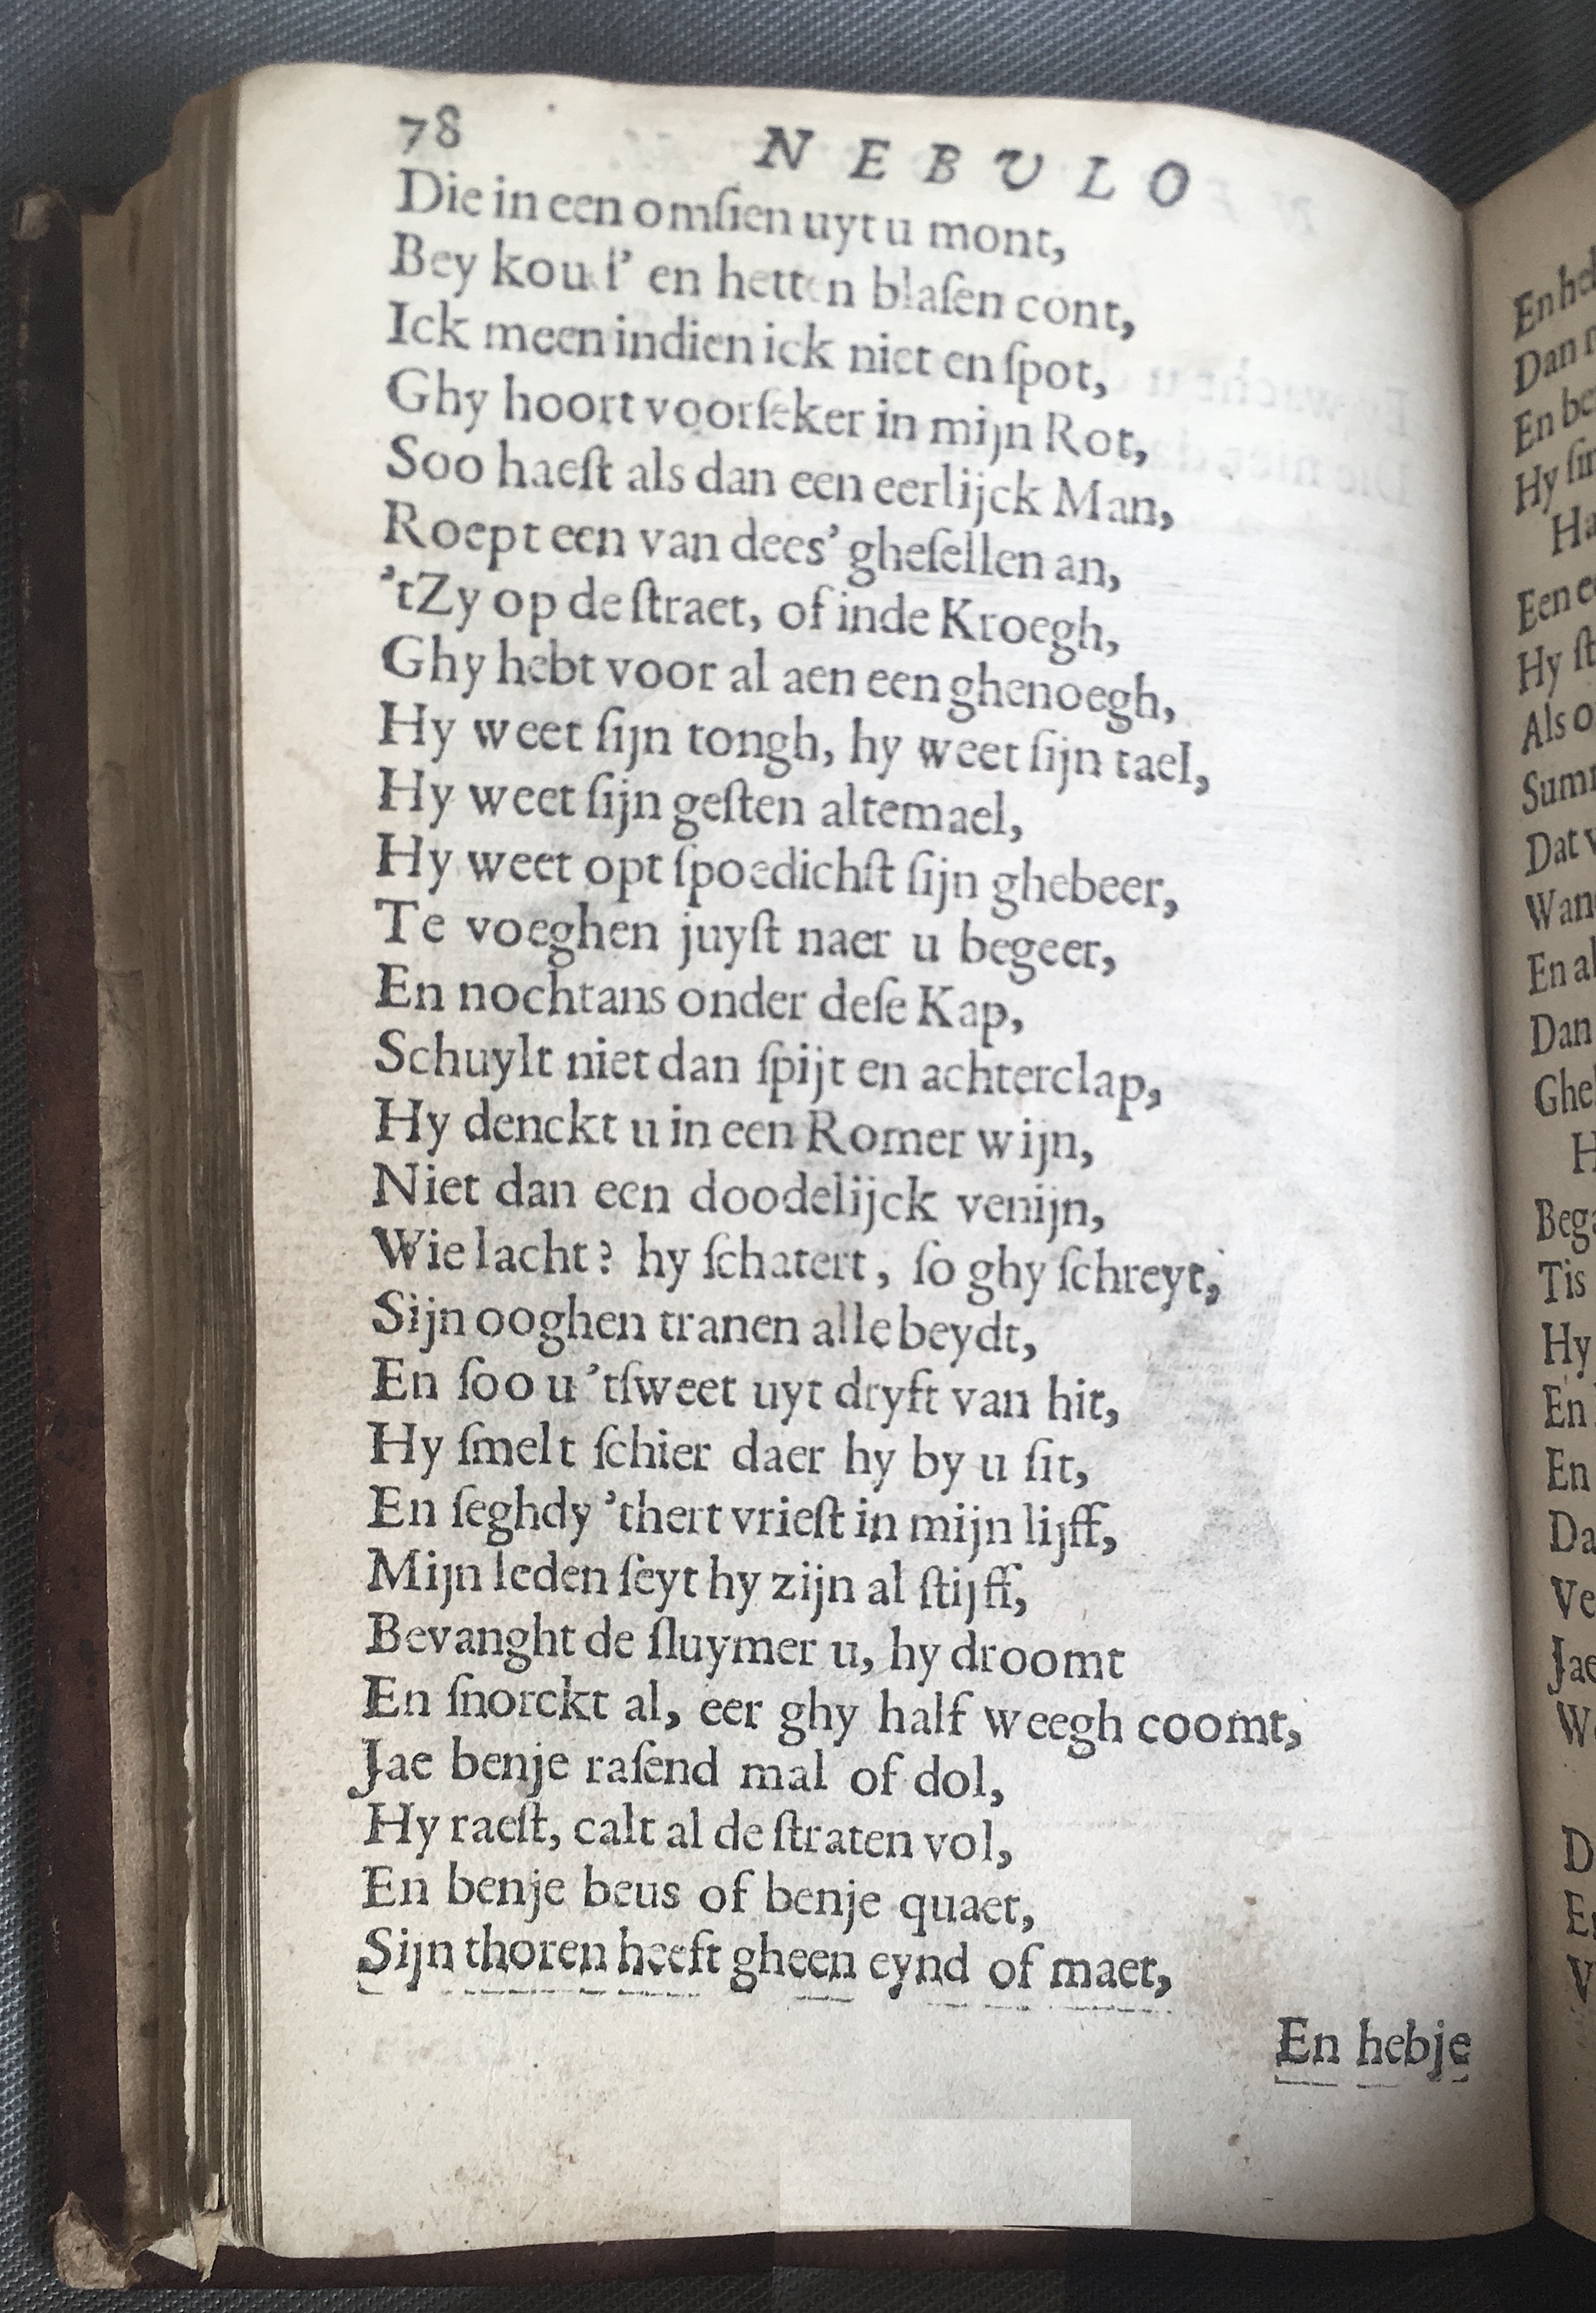 78 NEBVLO
Die in een omſien uyt u mont,
Bey koud' en hetten blaſen cont,
Ick meen indien ick niet en ſpot,
Ghy hoort voorſeker in mijn Rot,
Soo haeſt als dan een eerlijck Man,
Roept een van dees' gheſellen an,
'tZy op de ſtraet, of inde Kroegh,
Ghy hebt voor al aen een ghenoegh,
Hy weet ſijn tongh, hy weet ſijn tael,
Hy weet ſijn geſten altemael,
Hy weet opt ſpoedichſt ſijn ghebeer,
Te voeghen juyſt naer u begeer,
En nochtans onder deſe Kap,
Schuylt niet dan ſpijt en achterclap,
Hy denckt u in een Romer wijn,
Niet dan een doodelijck venijn,
Wie lacht? hy ſchatert, ſo ghy ſchreyt,
Sijn ooghen tranen alle beydt,
En ſoo u 'tſweet uyt dryft van hit,
Hy ſmelt ſchier daer hy by u ſit,
En ſeghdy 'thert vrieſt in mijn lijff,
Mijn leden ſeyt hy zijn al ſtijff,
Bevanght de ſluymer u, hy droomt
En ſnorckt al, eer ghy half weegh coomt,
Jae benje raſend mal of dol,
Hy raeſt, calt al de ſtraten vol,
En benje beus of benje quaet,
Sijn thoren heeft gheen eynd of maet,
En hebje
En
Dan
En
Hy
Een
Hy
Als
Dat
En
Dan
Tis
Hy
En
En